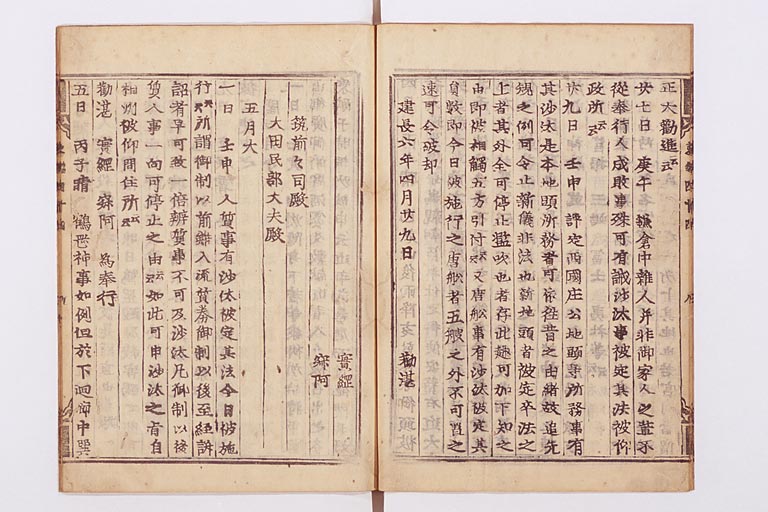 正大勸進云云
廿七日 庚午 鎌倉中雜人并非御家人之輩不
從奉行人成敗事殊可有誡沙汰事被定其法被仰
政所云云
廿九日 壬申 評定西國庄公地頭等所務事有
其沙汰是本地頭所務者可依往昔之由緒故追先
規之例可令止新儀非法也新地頭者被定率法之
上者其外全可停止濫吹也者存此趣可加下知之
由即被相觸五方引付云云又唐舩事有沙汰被定其
員數即今日被施行之唐舩者五艘之外不可置之
速可令破却
建長六年四月廿九日 勸湛
實經
寂阿
筑前々司殿
大田民部大夫殿
五月大
一日 壬申 人質事有沙汰被定其法今日被施
行云云所謂御制以前雖入流質券御制以後至經訴
詔者早可致一倍辨質事不可及沙汰凡御制以後
質人事一向可停止之由云云如此可申沙汰之旨自
相州被仰問住所云云
勸湛 實經 寂阿 為奉行
五日 丙子晴 鶴岳神事如例但於下廻廊中巽